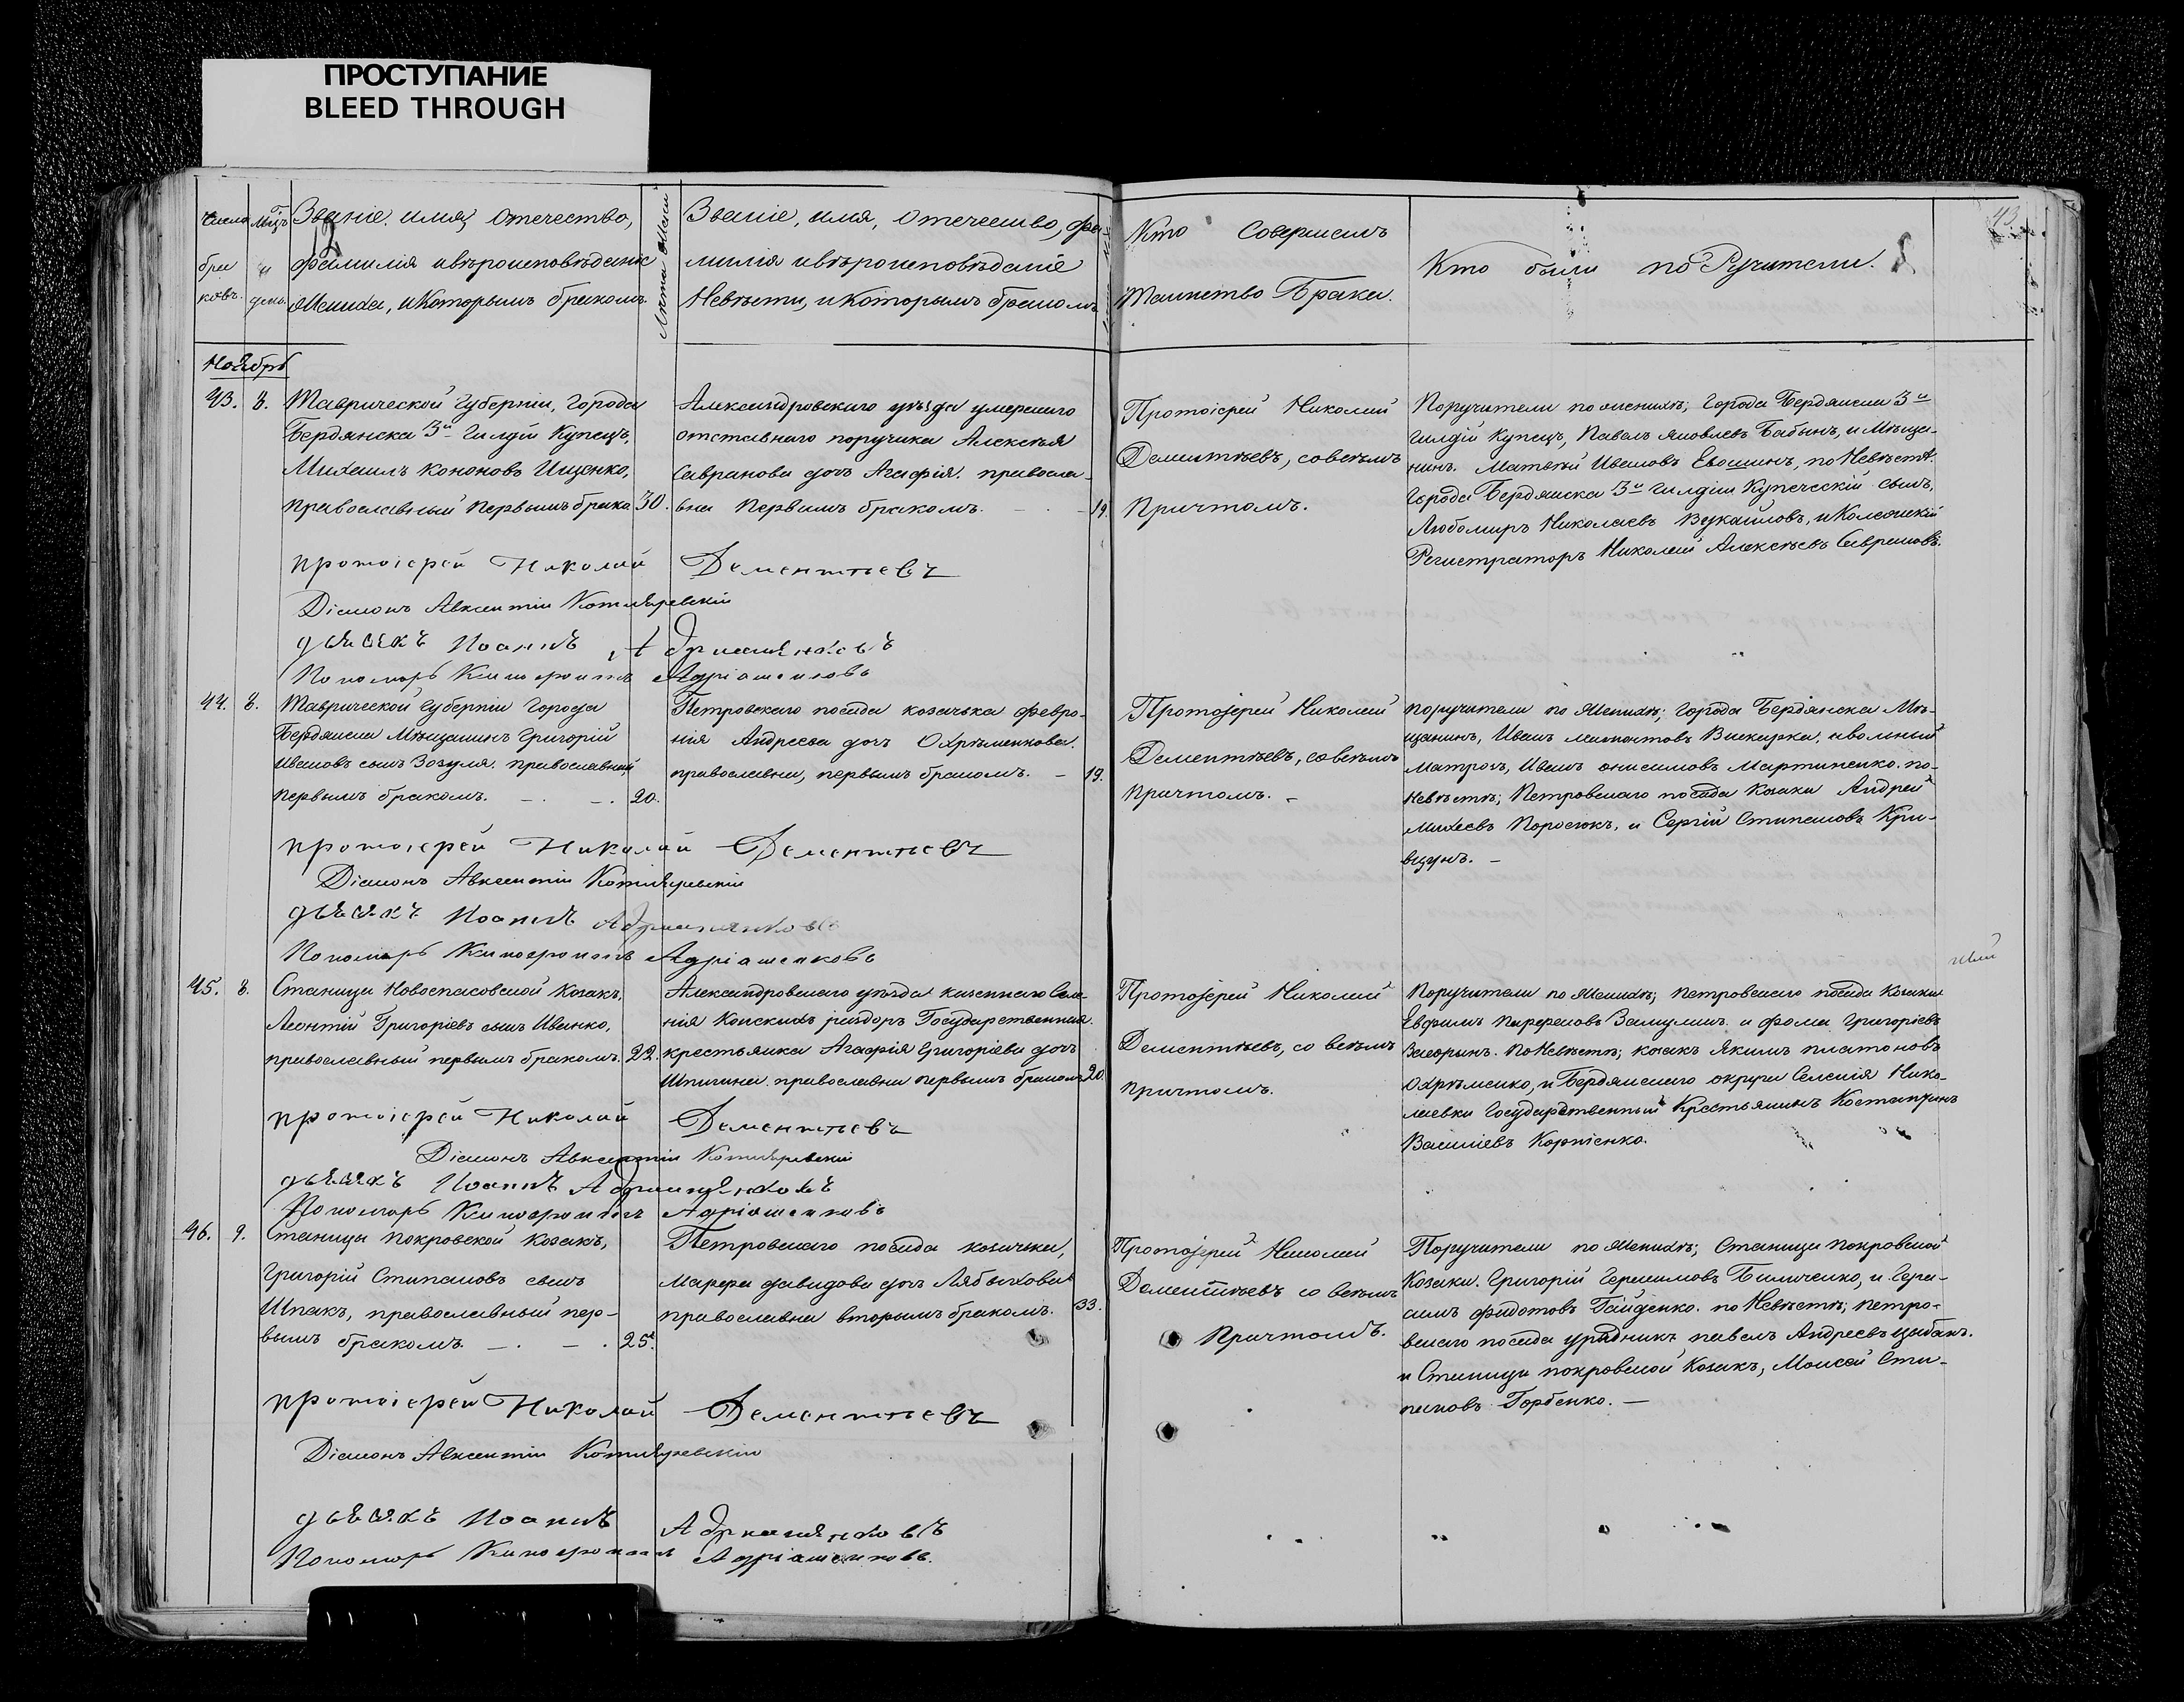 ПРОСТУПАНИЕ
BLEED THROUGH
Число Мѣц. Званіе, имя, Отечество, Лѣта жениха Званіе, имя, Отечество, фа-
бра и фамилія и вѣроисповѣданіе милія и вѣроисповѣданіе
ковъ. день. Жениха, и Которымъ бракомъ. Невѣсти, и Которымъ бракомъ
Кто Совершалъ
Таинство Брака.
Кто были по Ручители.
Ноябрь
43. 8. Таврической Губерніи, Города
Бердянска 3й Гилдіи Купецъ,
Михаилъ Кононовъ Ищенко,
Православный Первымъ брако 30.
Александровскаго уѣзда умершаго
отставнаго поручика Алексѣя
Савранова дочь Агафія. правосла-
вна Первымъ бракомъ. 19.
Протоіерей Николай
Дементѣевъ, со всѣмъ
Причтомъ.
Поручители по женихѣ; Города Бердянска 3й
Гилдіи Купецъ, Павелъ Яковлевъ Бабынъ, и Мѣща-
нинъ. Матвѣй Ивановъ Евошинъ, по Невѣстѣ.
Города Бердянска 3й Гилдіи Купеческій сынъ,
Любомиръ Николаевъ Вукаиловъ, и Колежскій
Регистраторъ Николай Алексѣевъ Саврановъ.
протоіерей Николай Дементьевъ
Діаконъ Авксентій Котляревскій
дьячокъ Иоаннъ Адріашенковъ
Пономарь Ксенофонтъ Адріашенковъ
44. 8. Таврической Губерніи Города
Бердянска Мѣщанинъ Григорій
Ивановъ сынъ Зозуля. православный
первымъ бракомъ. 20.
Петровскаго посада козачька Февро-
нія Андреева дочь Охрѣменкова.
православна, первымъ бракомъ. 19.
Протоіерей Николай
Дементѣевъ, со всѣмъ
Причтомъ.
поручители по Женихѣ; Города Бердянска Мѣ-
щанинъ, Иванъ и вольный
Матросъ, Иванъ Онисимовъ Мартиненко. по-
Невѣстѣ; Петровскаго посада Козаки Андрей
Михеевъ Поросюкъ, и Сергій Стипановъ Кри-
вцунъ.
протоіерей Николай Дементьевъ
Діаконъ Авксентій Котляревскій
дьячокъ Иоаннъ Адріашенковъ
Пономарь Ксенофонтъ Адріашенковъ
45. 8. Станици Новоспасовской Козакъ,
Леонтій Григоріевъ сынъ Иванко,
православный первымъ бракомъ. 22.
Александровскаго уѣзда казеннаго Селе-
нія Конскихъ раздоръ Государственная
крестьянка Агафія Григоріева дочь
Шпигина. православна первымъ бракомъ 20.
Протоіерей Николай
Дементѣевъ, со всѣмъ
Причтомъ.
Поручители по Женихѣ; Петровскаго посада Козаки
Евфимъ и Фома Григоріевъ
По Невѣстѣ; козакъ Якимъ Платоновъ
Охрѣменко, и Бердянскаго округа Селенія Нико-
лаевки Государственный Крестьянинъ Костантинъ
Василіевъ Корніенко.
протоіерей Николай Дементьевъ
Діаконъ Авксентій Котляревскій
дьячокъ Иоаннъ Адріашенковъ
Пономарь Ксенофонтъ Адріашенковъ
46. 9. Станицы Покровской Козакъ,
Григорій Стипановъ сынъ
Шпакъ, православный пер-
вымъ бракомъ. 25.
Петровскаго посада козачька,
Марфа Давидова дочь Лябыхова
православна вторымъ бракомъ. 33.
Протоіерей Николай
Дементѣевъ со всѣмъ
Причтомъ.
Поручители по Женихѣ; Станици Покровской
Козаки. Григорій Герасимовъ Биличенко, и Гера-
симъ Федотовъ Гайденко. по Невѣстѣ; Петро-
вскаго посада урядникъ Павелъ Андреевъ Цыбань.
и Станици Покровской Козакъ, Моисей Сти-
пановъ Горбенко.
протоіерей Николай Дементьевъ
Діаконъ Авксентій Котляревскій
дьячокъ Иоаннъ Адріашенковъ
Пономарь Ксенофонтъ Адріашенковъ.